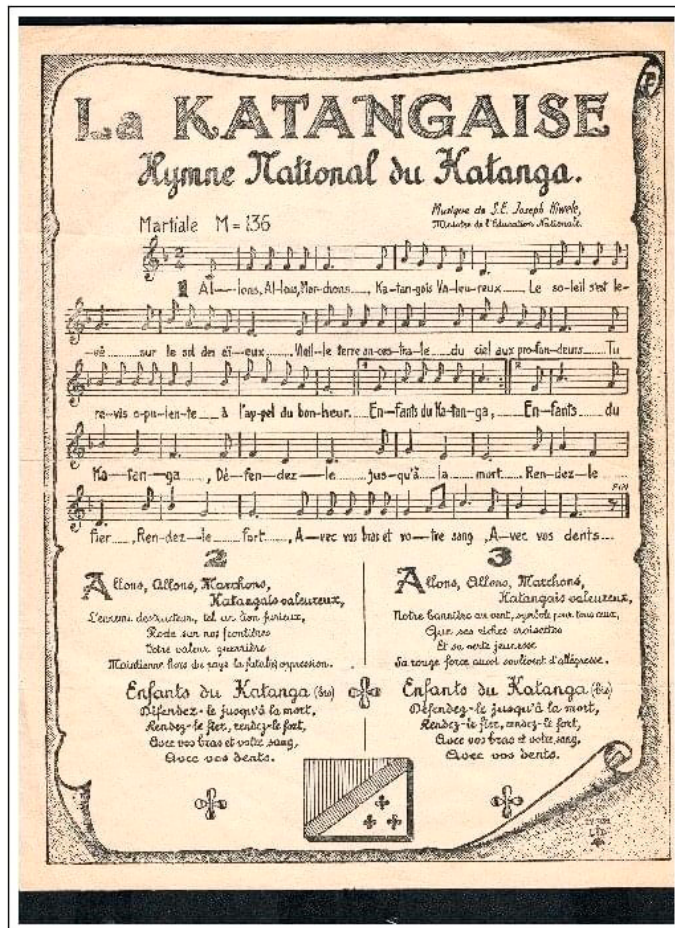 La KATANGAISE
Hymne National du Katanga.
Musique de S.E. Joseph Kiwele,
Ministre de l'Education Nationale.
Martiale M=136
1 Al—lons, Al-lons, Mar-chons...., Ka-tan-gais Va-leu-reux..... Le so-leil s'est le-
-vé......sur le sol des aï-eux.....Vieil-le terre an-ces-tra-le....du ciel aux pro-fon-deurs.....Tu
re-vis o-pu-len-te.... à l'ap-pel du bon-heur. En-fants du Ka-tan-ga, En-fants du
Ka-tan-ga ...., Dé-fen-dez-le jus-qu'à la mort. Ren-dez-le
fier....., Ren-dez-le fort., A-vec vos bras et vo-tre sang, A-vec vos dents...
FIN
2
Allons, Allons, Marchons,
Katangais valeureux,
L'ennemi destructeur, tel un lion furieux,
Rode sur nos frontières
Votre valeur guerrière
Maintienne hors du pays la fatale oppression.
Enfants du Katanga (bis)
Défendez-le jusqu'à la mort,
Rendez-le fier, rendez-le fort,
Avec vos bras et votre sang,
Avec vos dents.
3
Allons, Allons, Marchons,
Katangais valeureux,
Notre bannière au vent, symbole pour tous ceux,
Que ses riches croisettes
Et sa verte jeunesse
Sa rouge force aussi soulèvent d'allégresse.
Enfants du Katanga (bis)
Défendez-le jusqu'à la mort,
Rendez-le fier, rendez-le fort,
Avec vos bras et votre sang,
Avec vos dents.